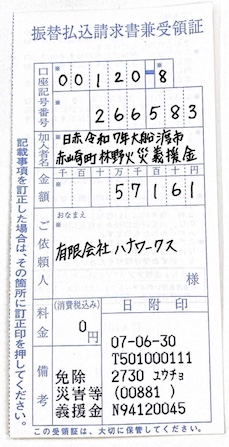 振替払込請求書兼受領証
口座記号番号
00120-8
266583
加入者名
日赤令和7年大船渡市
赤崎町林野火災義援金
金額
千 百 十 万 千 百 十 円
57161
ご依頼人
おなまえ
有限会社ハナワークス
様
料金
(消費税込み)
0円
備考
免除
災害等
義援金
日附印
07-06-30
T501000111
2730 ユウチョ
(00881)
N94120045
記載事項を訂正した場合は、その箇所に訂正印を押してください。
この受領証は、大切に保管してください。